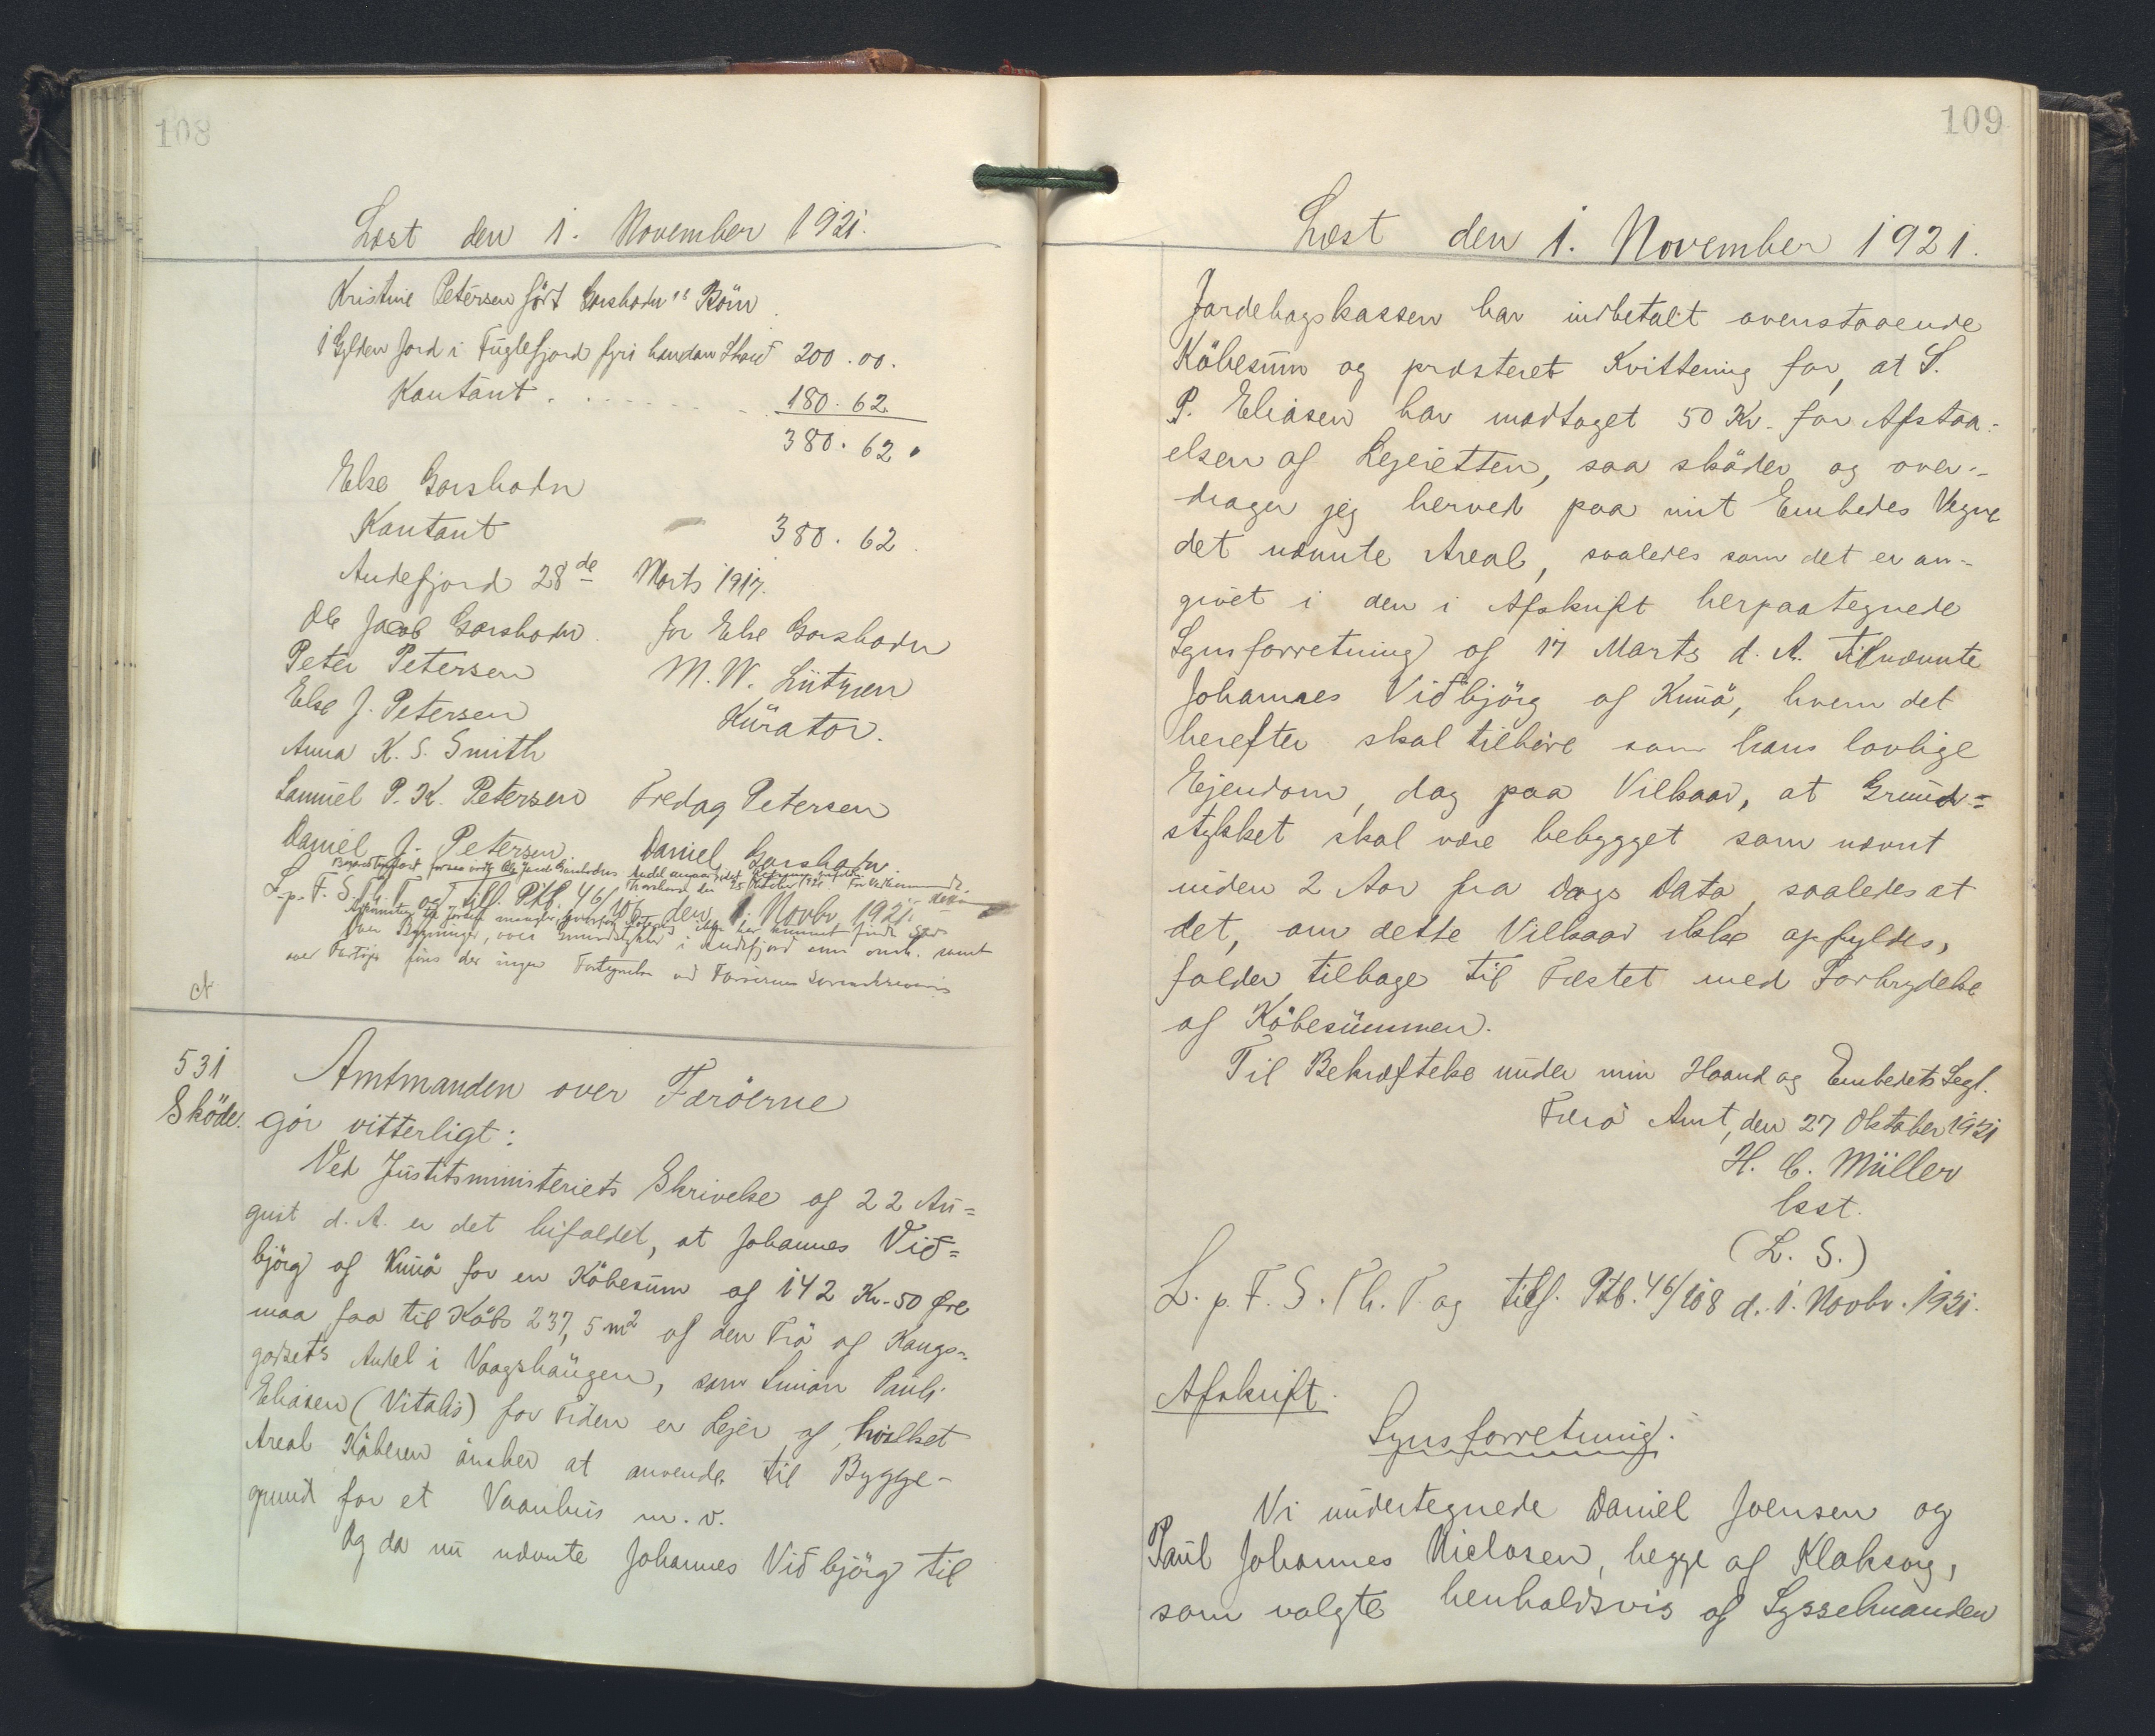 108
Læst den 1. November 1921.
Kristine Petersen født Gorshodn's Börn
1 Gylden Jord i Fuglefjord fyri handan Skard 200.00.
Kontant . . . . . . 180.62
380.62.
Else Gorshodn
Kontant 380.62.
Andefjord 28de Marts 1917.
Ole Jacob Gorshodn. for Else Gorshodn
Peter Petersen M. W. Lützen
Else J. Petersen Kurator.
Anna K. S. Smith
Samuel P. K. Petersen Fredag Petersen
Daniel J. Petersen Daniel Gorshodn
Ole Jacob Gorshodns Andel angaar
Thorshavn den 25 Oktober 1921
L. p. F. S. Th. T. og tilf. Ptb. 46/106 den 1. Novbr. 1921.
over Bygninger, over Grundstykker i Andefjord samt
over Fartøjer fins der ingen Fortegnelse ved Færøernes Sorenskriveri
531
Sköde.
Amtmanden over Færöerne
gör vitterligt:
Ved Justitsministeriets Skrivelse af 22 Au=
gust d. A. er det bifaldet, at Johannes Við=
björg af Kunö for en Köbesum af 142 Kr. 50 Øre
maa faa til Köbs 237,5 m2 af den Trö af Kongs-
godsets Andel i Vaagshaugen, som Simon Pauli
Eliasen (Vitalis) for Tiden er Lejer af, hvilket
Areal Köberen önsker at anvende til Bygge-
grund for et Vaanhus m. v.
Og da nu nævnte Johannes Viðbjörg til
109
Læst den 1. November 1921.
Jordebogskassen har indbetalt ovenstaaende
Köbesum og præsteret Kvittering for, at S.
P. Eliasen har modtaget 50 Kr. for Afstaa-
elsen af Lejeretten, saa sköder og over-
drager jeg herved paa mit Embedes Vegne
det nævnte Areal, saaledes som det er an-
givet i den i Afskrift herpaategnede
Synsforretning af 17 Marts d. A. til nævnte
Johannes Viðbjörg af Kunö, hvem det
herefter skal tilhøre som hans lovlige
Ejendom, dog paa Vilkaar, at Grund=
stykket skal være bebygget som nævnt
inden 2 Aar fra Dags Dato, saaledes at
det, om dette Vilkaar ikke opfyldes,
falder tilbage til Fæstet med Forbrydelse
af Köbesummen.
Til Bekræftelse under min Haand og Embedets Segl.
Færö Amt, den 27 Oktober 1921
H. C. Müller
Csst.
(L. S.)
L. p. F. S. Th. T. og tilf. Ptb. 46/108 d. 1. Novbr. 1921.
Afskrift.
Synsforretning.
Vi undertegnede Daniel Joensen og
Paul Johannes Niclasen, begge af Klaksvig,
som valgte henholdsvis af Sysselmanden